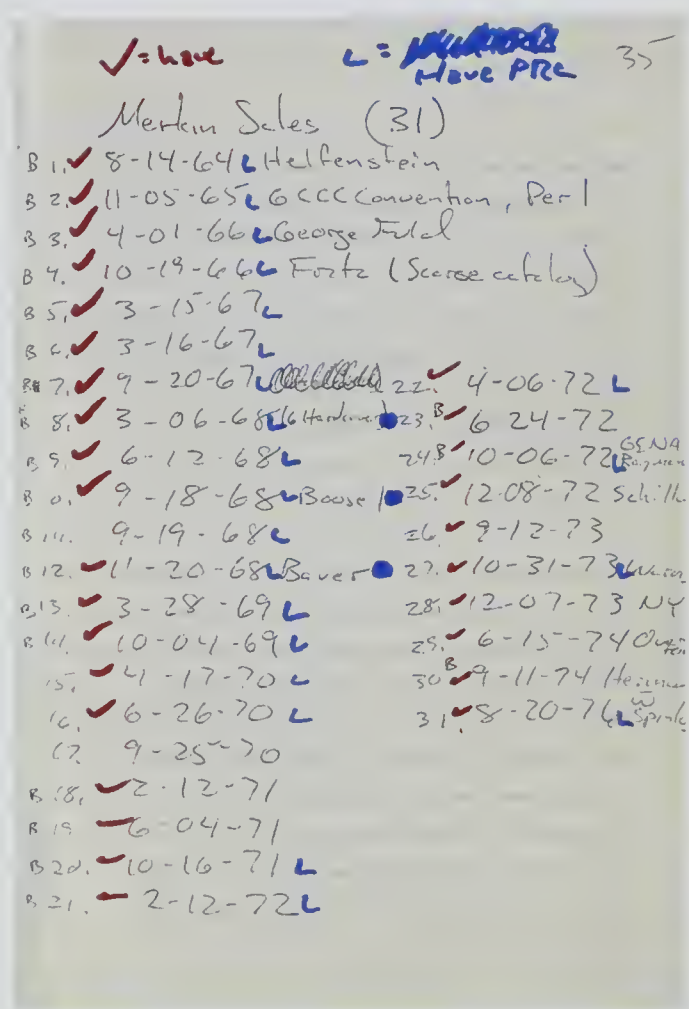 ✓ = have L = Have PRL 35
Merkin Sales (31)
B 1. ✓ 8-14-64 L Helfenstein
B 2. ✓ 11-05-65 L GCCC Convention, Perl
B 3. ✓ 4-01-66 L George Fuld
B 4. ✓ 10-19-66 L (Scarce catalog)
B 5. ✓ 3-15-67 L
B 6. ✓ 3-16-67 L
B 7. ✓ 9-20-67 L
B 8. ✓ 3-06-68 L
B 9. ✓ 6-12-68 L
B 10. ✓ 9-18-68 L Boosel
B 11. 9-19-68 L
B 12. ✓ 11-20-68 L Bauer
B 13. ✓ 3-28-69 L
B 14. ✓ 10-04-69 L
15. ✓ 4-17-70 L
16. ✓ 6-26-70 L
17. 9-25-70
B 18. ✓ 2-12-71
B 19 ✓ 6-04-71
B 20. ✓ 10-16-71 L
B 21. ✓ 2-12-72 L
22. ✓ 4-06-72 L
23. B ✓ 6 24-72
24. B ✓ 10-06-72 L GENA
25. ✓ 12-08-72
26. ✓ 9-12-73
27. ✓ 10-31-73 L
28. ✓ 12-07-73 NY
29. ✓ 6-15-74
30 B ✓ 9-11-74
31. ✓ 8-20-76 L Spink